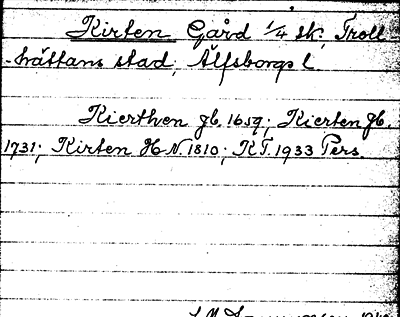 Kirten Gård 1/4 sk, Troll-
hättans stad, Älfsborgs l.
Kierthen jb. 1659; Kierten jb.
1731; Kirten H N. 1810; K T. 1933 Pers.